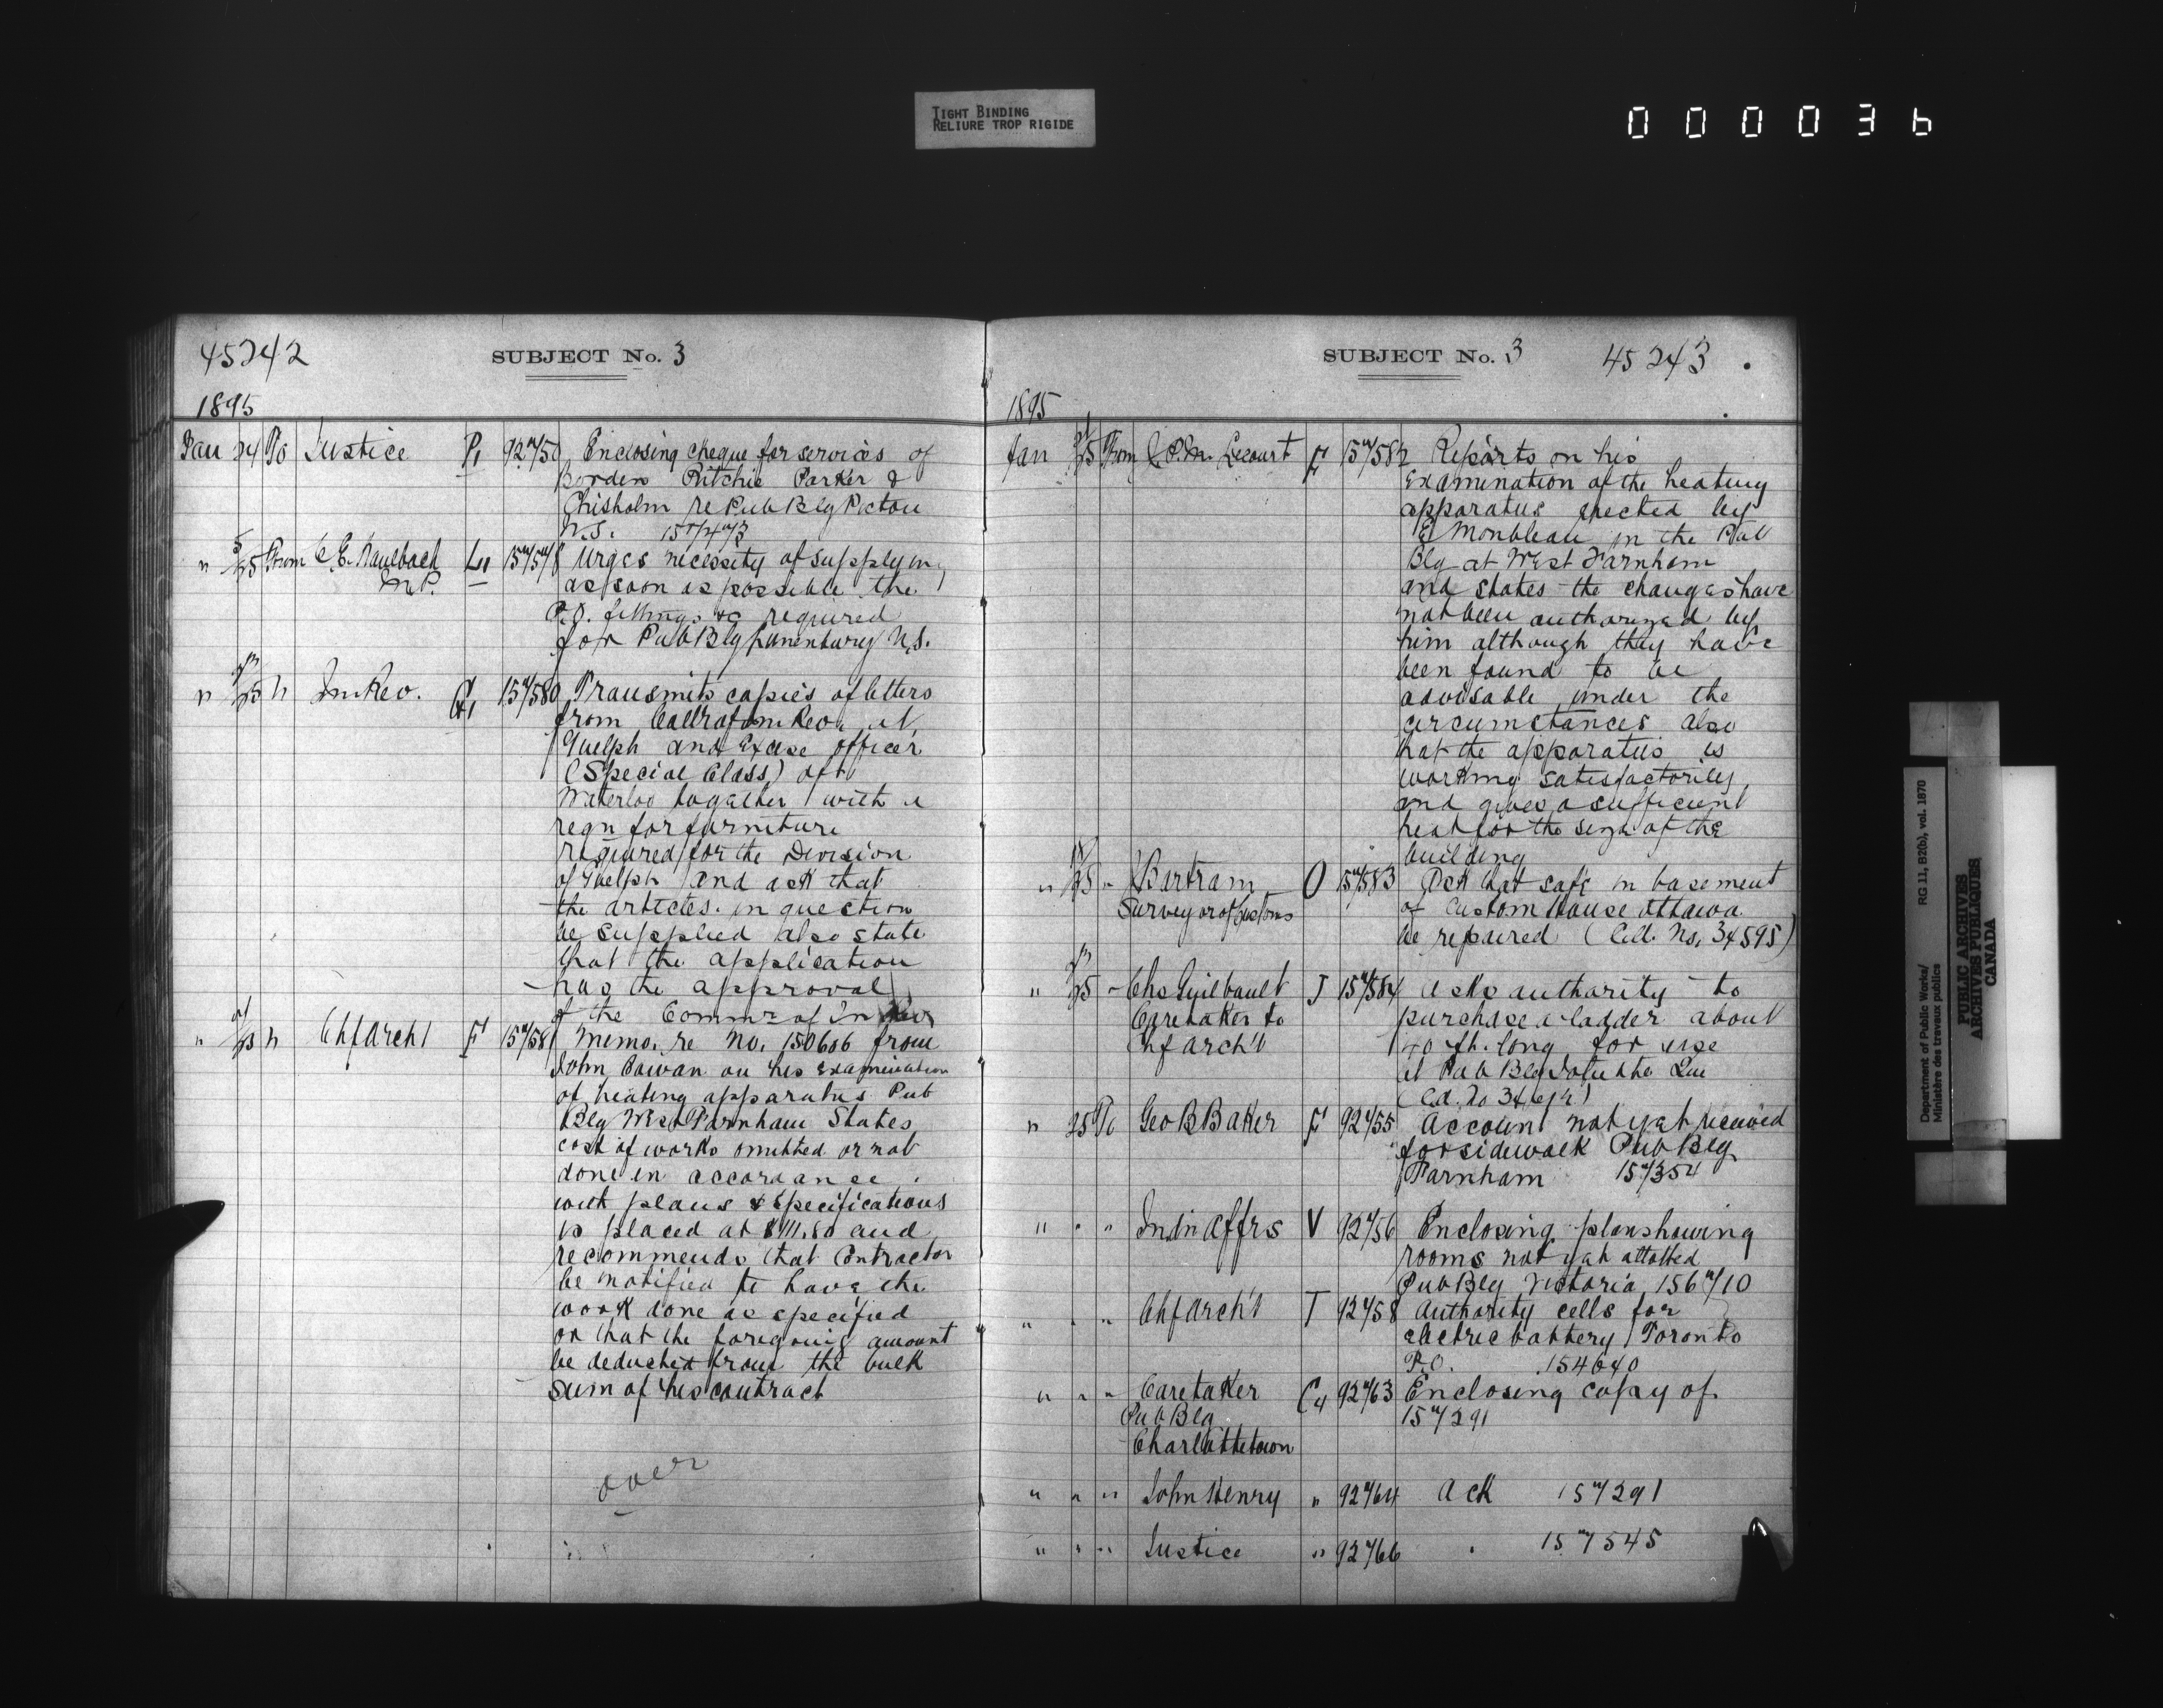 TIGHT BINDING
RELIURE TROP RIGIDE
000036
45242
SUBJECT No. 3
1895
Jan 24 To Justice P1 92450 Enclosing cheque for services of
Borden Ritchie Parker &
Chisholm re Pub Blg Pictou
N.S.
" 25 From C.E. Kaulbach L1 Urges necessity of supplying
M.P. as soon as possible the
P.O. fittings &c required
for Pub Blg Lunenburg N.S.
" 25 " In Rev. G1 157580 Transmits copies of letters
from Collr of Inn Rev. at
Guelph and Excise officer
(Special Class) at
Waterloo together with a
reqn for furniture
required for the Division
of Guelph and ask that
the articles in question
be supplied also state
that the application
has the approval
of the Commr of In Rev
" " Chf Archt F 157581 Memo. re No. 150606 from
John Cowan on his examination
of heating apparatus Pub
Blg West Farnham States
cost of works omitted or not
done in accordance
with plans & specifications
is placed at $111.80 and
recommends that Contractor
be notified to have the
work done as specified
or that the foregoing amount
be deducted from the bulk
sum of his contract
over
SUBJECT No. 3
45243
1895
Jan 25 From Lecourt F 157582 Reports on his
examination of the heating
apparatus erected by
E Monbleau in the Pub
Blg at West Farnham
and states the changes have
not been authorized by
him although they have
been found to be
advisable under the
circumstances also
that the apparatus is
working satisfactorily
and gives a sufficient
heat for the size of the
building
" 25 " Bartram O 157583 Ask that safe in basement
Surveyor of Customs of Custom House Ottawa
be repaired (Cd. No. 34595)
" 25 " Chs Guilbault J 157584 Asks authority to
Caretaker to purchase a ladder about
Chf Arch't 40 ft. long for use
at Pub Blg Joliette Que
" 25 To Geo B Baker F 92455 Account not yet received
for sidewalk Pub Blg
Farnham 157354
" " " Indn Affrs V 92456 Enclosing plan showing
rooms not yet allotted
Pub Blg Victoria 156710
" " " Chf Arch't T 92458 Authority cells for
electric battery Toronto
P.O. 154640
" " " Caretaker C4 92463 Enclosing copy of
Pub Blg 157291
Charlottetown
" " " John Henry " 92464 Ack 157291
" " " Justice " 92466 " 157545
Department of Public Works/ RG 11, B2(b), vol. 1870
Ministère des travaux publics
PUBLIC ARCHIVES
ARCHIVES PUBLIQUES
CANADA